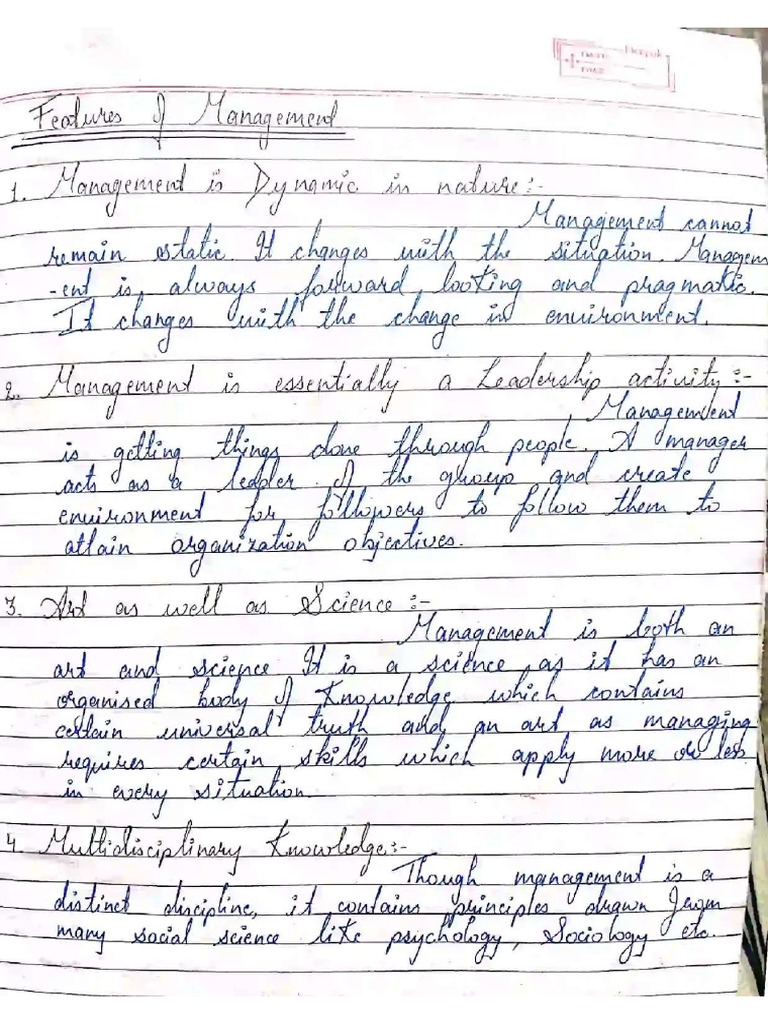 Features of Management
1. Management is Dynamic in nature:-
Management cannot
remain static. It changes with the situation. Managem
-ent is, always forward, looking and pragmatic.
It changes with the change in environment.
2. Management is essentially a Leadership activity:-
Management
is getting things done through people. A manager
acts as a leader of the group and create
environment for followers to follow them to
attain organization objectives.
3. Art as well as Science:-
Management is both an
art and science It is a science, as it has an
organised body of Knowledge which contains
certain universal truth and an art as managing
requires certain skills which apply more or less
in every situation.
4. Multidisciplinary Knowledge:-
Though management is a
distinct discipline, it contains principles drawn from
many social science like psychology, Sociology etc.